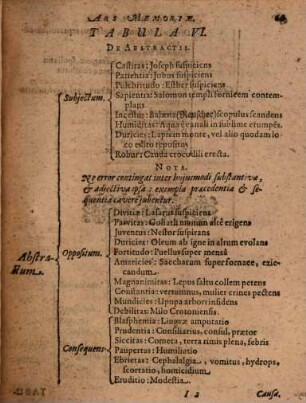 ARS MEMORIÆ.
TABULA VI.
DE ABSTRACTIS.
Castitas: Joseph suspiciens
Patientia: Jobus suspiciens
Pulchritudo: Esther suspiciens
Subjectum. Sapientia: Salomon templi fornicem contem-
plans
Incestus: scopulus scandens
Humiditas: Aquæ canali in sublime erumpēs.
Durities: Lapis in monte, vel alio quodam lo-
co edito repositus
Robur: Cauda crocodili erecta.
NOTA.
Ne error contingat inter hujusmodi substantiva,
& adjectiva ipsa: exempla præcedentia & se-
quentia cavere jubentur.
Divitiæ: Lasarus suspiciens
Parvitas: Goliath nimium altè erigens
Juventus: Nestor suspirans
Durities: Oleum ab igne in altum evolans
Abstra-
ctum. Oppositum. Fortitudo: Puellus super mensâ
Amarities: Saccharum super fornace, exic-
candum
Magnanimitas: Lepus saltu collem petens
Constantia: versutus, mulier crines pectens
Mundicies: Upupa arbori insidens
Debilitas: Milo Crotoniensis.
Blasphemia: Linguæ amputatio
Prudentia: Consiliarius, consul, prætor
Siccitas: Cometa, terra rimis plena, febris
Consequens Paupertas: Humiliatio
Ebrietas: Cephalalgia, vomitus, hydrops,
scortatio, homicidium
Eruditio: Modestia.
I 2 Causa.